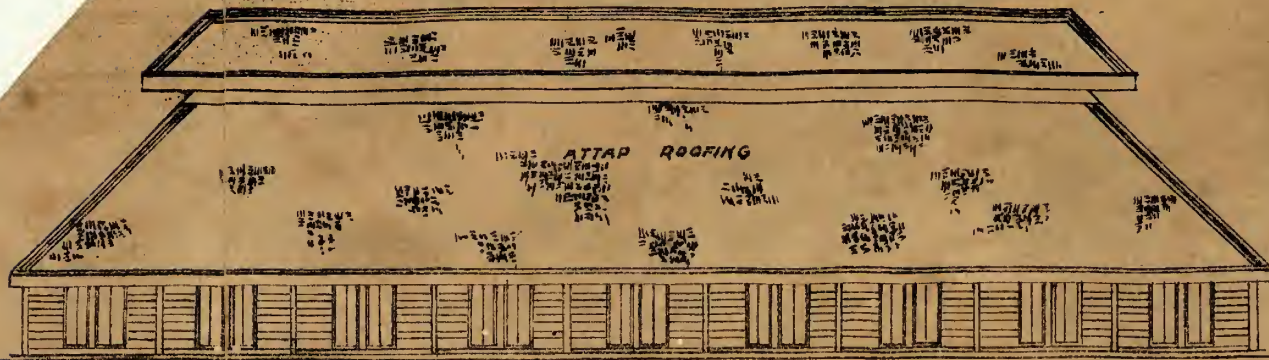 ATTAP ROOFING